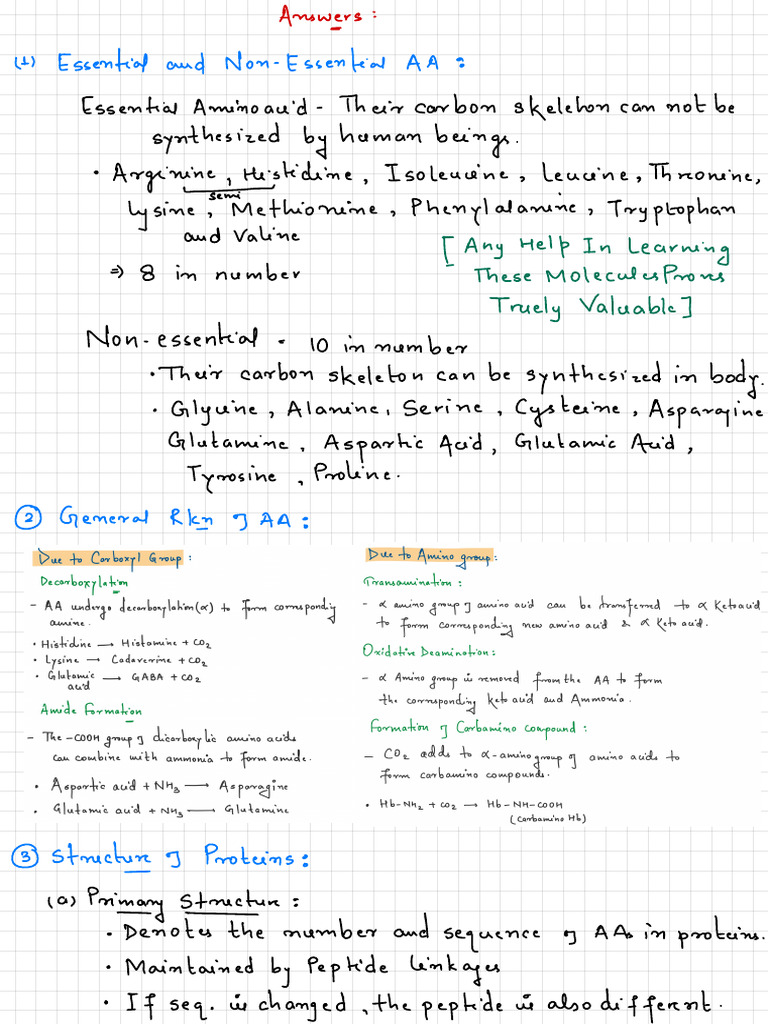 Answers :
(1) Essential and Non-Essential AA :
Essential Amino acid - Their carbon skeleton can not be
synthesized by human beings.
• Arginine, Histidine, Isoleucine, Leucine, Threonine,
semi
Lysine, Methionine, Phenylalanine, Tryptophan
and Valine
[Any Help In Learning
⇒ 8 in number
These Molecules Proves
Truely Valuable]
Non-essential - 10 in number
• Their carbon skeleton can be synthesized in body.
• Glycine, Alanine, Serine, Cysteine, Asparagine
Glutamine, Aspartic Acid, Glutamic Acid,
Tyrosine, Proline.
② General Rxn of AA :
Due to Carboxyl Group :
Decarboxylation
- AA undergo decarboxylation(α) to form corresponding
amine.
• Histidine → Histamine + CO2
• Lysine → Cadaverine + CO2
• Glutamic → GABA + CO2
acid
Amide Formation
- The -COOH group of dicarboxylic amino acids
can combine with ammonia to form amide.
• Aspartic acid + NH3 → Asparagine
• Glutamic acid + NH3 → Glutamine
Due to Amino group :
Transamination :
- α amino group of amino acid can be transferred to α Ketoacid
to form corresponding new amino acid & α Keto acid.
Oxidative Deamination :
- α Amino group is removed from the AA to form
the corresponding keto acid and Ammonia.
Formation of Carbamino compound :
- CO2 adds to α-amino group of amino acids to
form carbamino compounds.
• Hb-NH2 + CO2 → Hb-NH-COOH
(carbamino Hb)
③ Structure of Proteins :
(a) Primary Structure :
• Denotes the number and sequence of AAs in proteins.
• Maintained by Peptide linkages
• If seq. is changed, the peptide is also different.